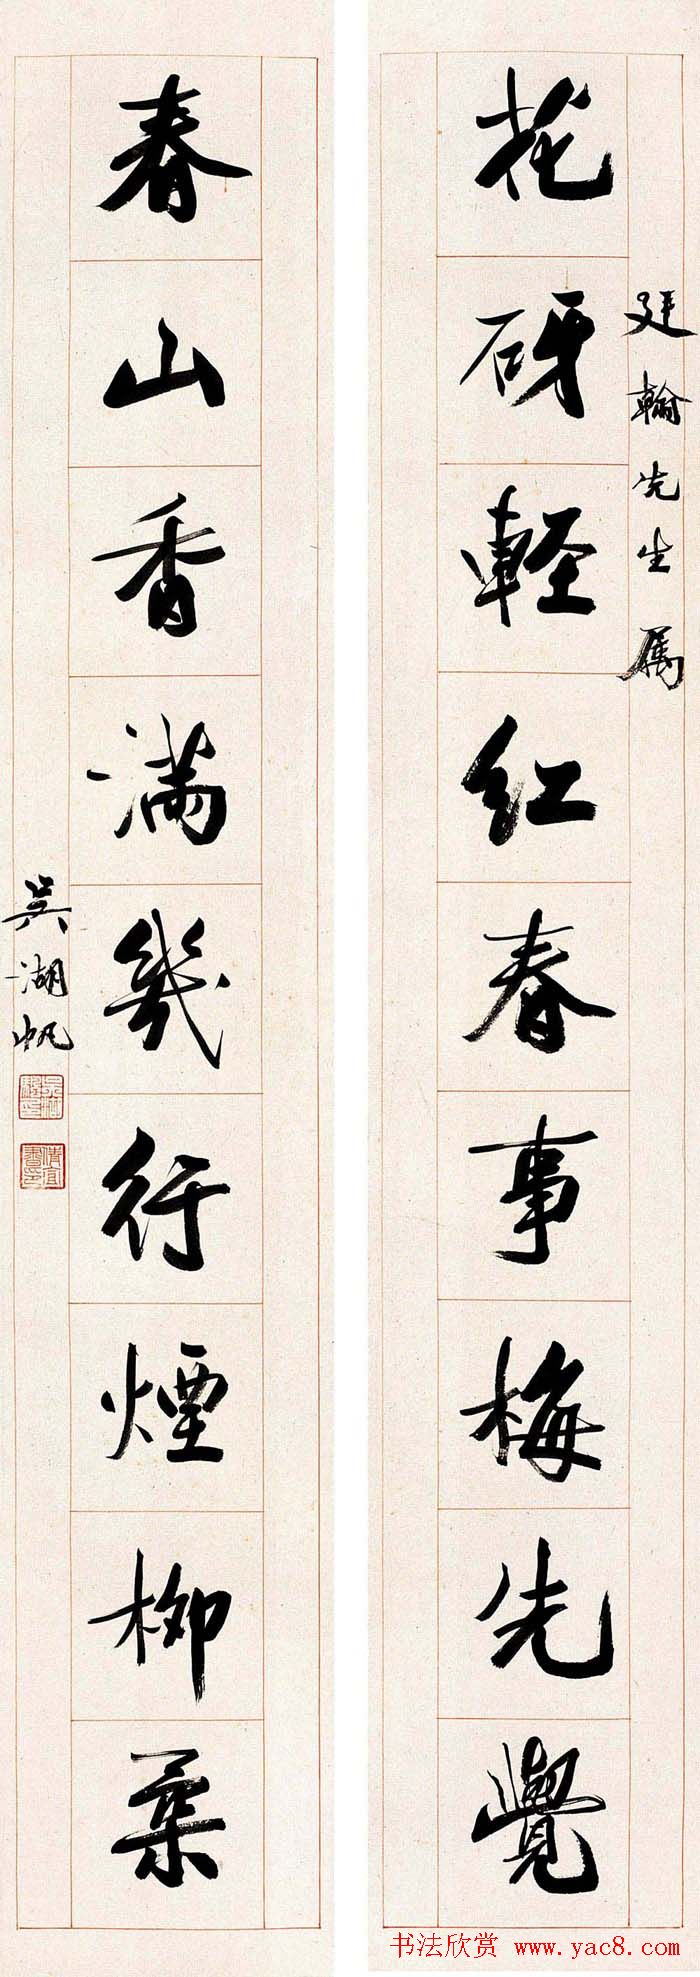 花砑軽红春事梅先覺
廷翰先生属
春山香满幾行煙柳葉
吴湖帆
书法欣赏 www.yac8.com